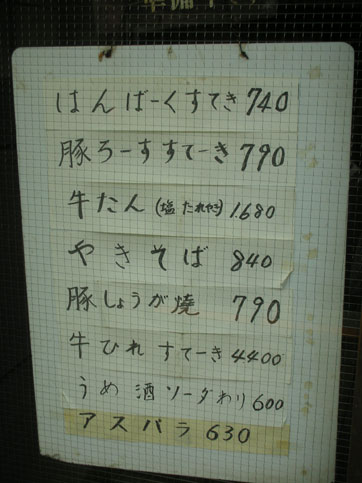 準備中
はんばーくすてき 740
豚ろーすすてーき 790
牛たん(塩 たれやき) 1.680
やきそば 840
豚しょうが焼 790
牛ひれ すてーき 4400
うめ酒ソーダわり 600
アスパラ 630